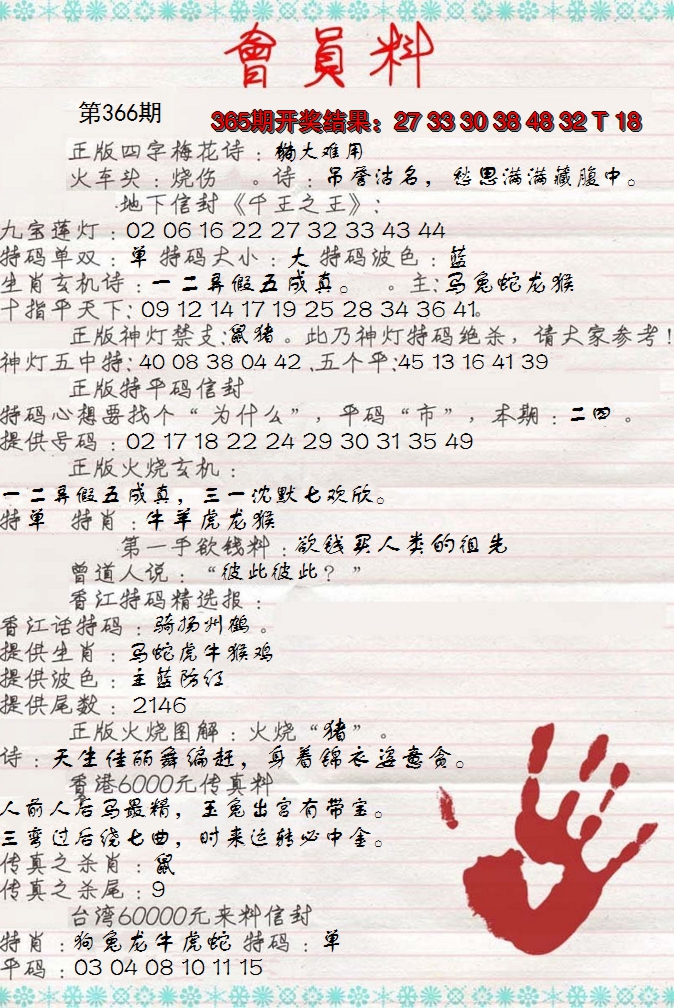 會員料
第366期
365期开奖结果：27 33 30 38 48 32 T 18
正版四字梅花诗：犓大难用
火车头：烧伤 。诗：吊誉沽名，愁思满满藏腹中。
地下信封《千王之王》：
九宝莲灯：02 06 16 22 27 32 33 43 44
特码单双：单 特码大小：大 特码波色：蓝
生肖玄机诗：一二弄假五成真。 。主：马兔蛇龙猴
十指平天下：09 12 14 17 19 25 28 34 36 41.
正版神灯禁支：鼠猪。此乃神灯特码绝杀，请大家参考！
神灯五中特：40 08 38 04 42 .五个平：45 13 16 41 39
正版特平码信封
特码心想要找个“为什么”，平码“市”，本期：二四 。
提供号码：02 17 18 22 24 29 30 31 35 49
正版火烧玄机：
一二弄假五成真，三一沈默七欢欣。
特单 特肖：牛羊虎龙猴
第一手欲钱料：欲钱买人类的祖先
曾道人说：“彼此彼此？”
香江特码精选报：
香江话特码：骑扬州鹤。
提供生肖：马蛇虎牛猴鸡
提供波色：主蓝防红
提供尾数：2146
正版火烧图解：火烧“猪”。
诗：天生佳丽舞编赶，身着锦衣姿意贪。
香港6000元传真料
人前人后马最精，玉兔出宫有带宝。
三弯过后绕七曲，时来运转必中金。
传真之杀肖：鼠
传真之杀尾：9
台湾60000元来料信封
特肖：狗兔龙牛虎蛇 特码：单
平码：03 04 08 10 11 15